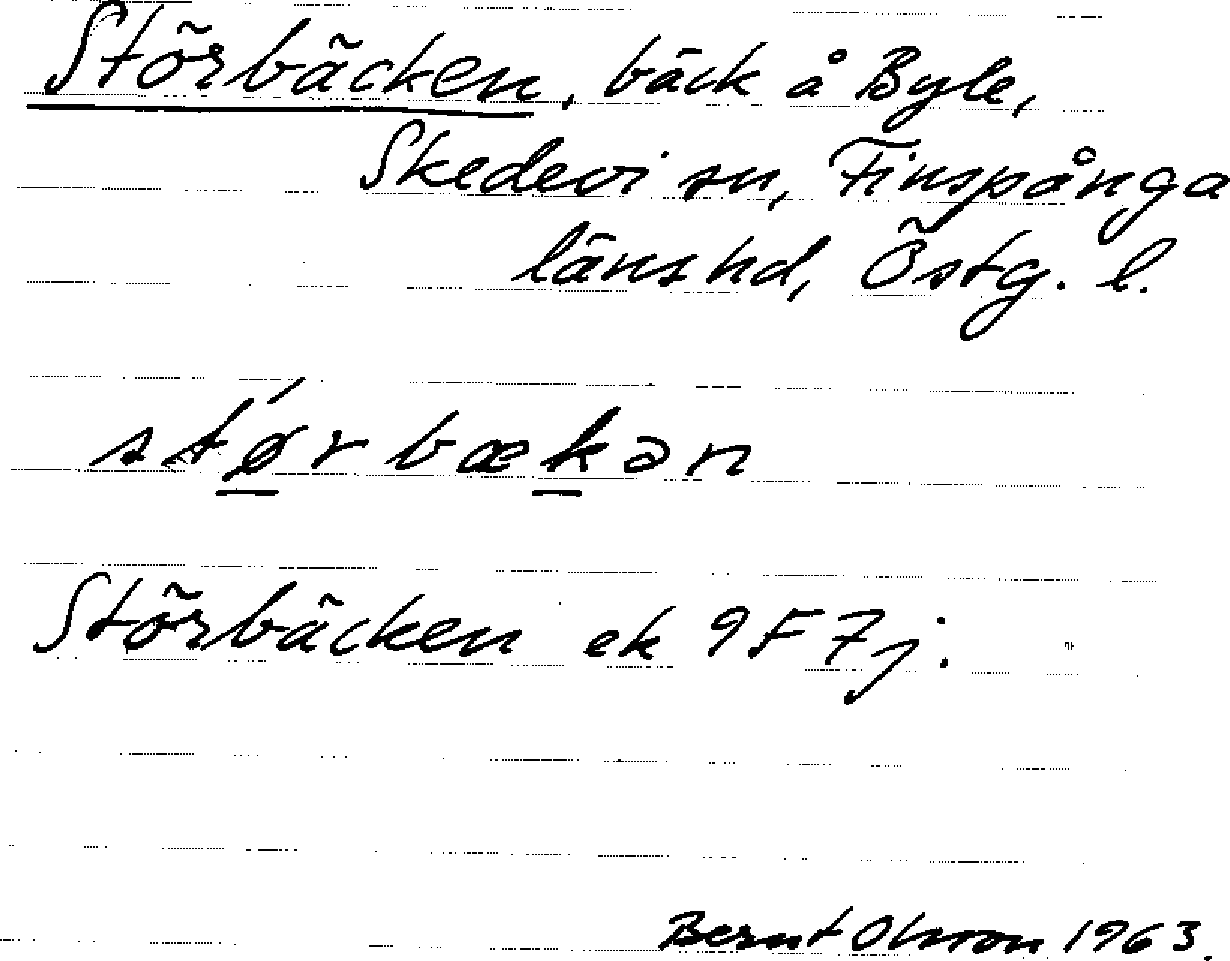 Störbäcken, bäck å Byle,
Skedevi sn, Finspånga
länshd, Östg. l.
stǿrbækən
Störbäcken ek 9F7j.
Bernt Olsson 1963.